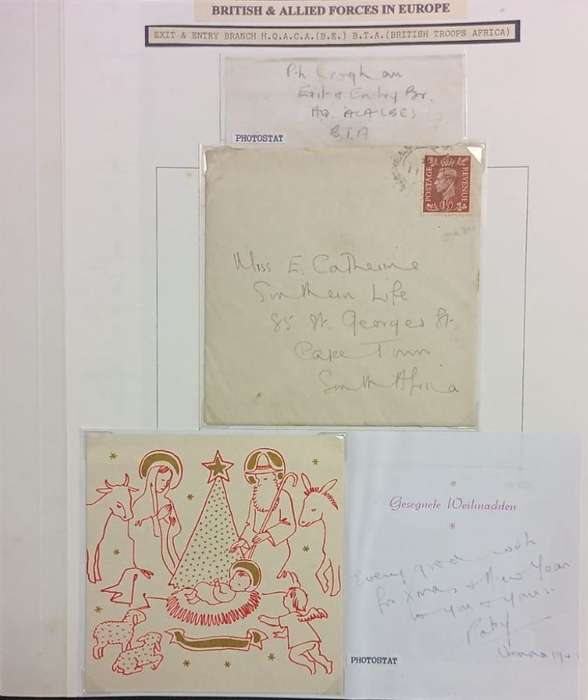 BRITISH & ALLIED FORCES IN EUROPE
EXIT & ENTRY BRANCH H.Q.A.C.A.(B.E.) B.T.A.(BRITISH TROOPS AFRICA)
Exit & Entry Br.
HQ
B.T.A
PHOTOSTAT
POSTAGE
REVENUE
Miss E. Catherine
Southern Life
85 St. Georges St.
Cape Town
South Africa
Gesegnete Weihnachten
Every good wish
for Xmas & New Year
to you & yours.
Patsy
PHOTOSTAT